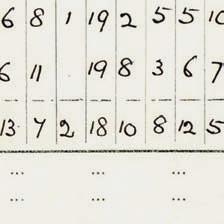 6 8 1 19 2 5 5 10
6 11 . 19 8 3 6 7
13 7 2 18 10 8 12 5
... ... ...
... ... ...